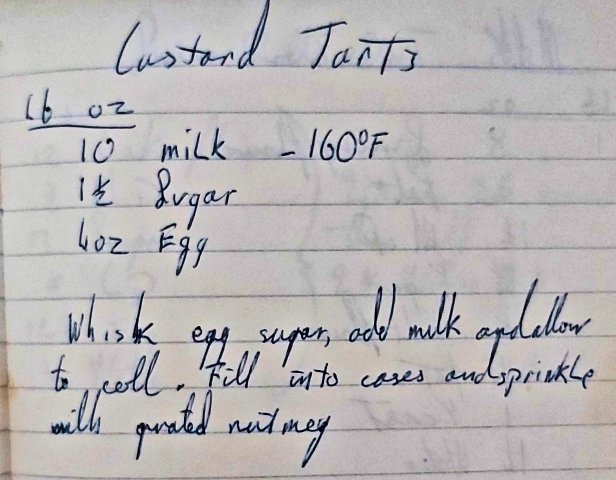 Custard Tarts
lb oz
10 milk - 160°F
1½ Sugar
4oz Egg
Whisk egg sugar, add milk and allow
to cool. Fill into cases and sprinkle
with grated nutmeg